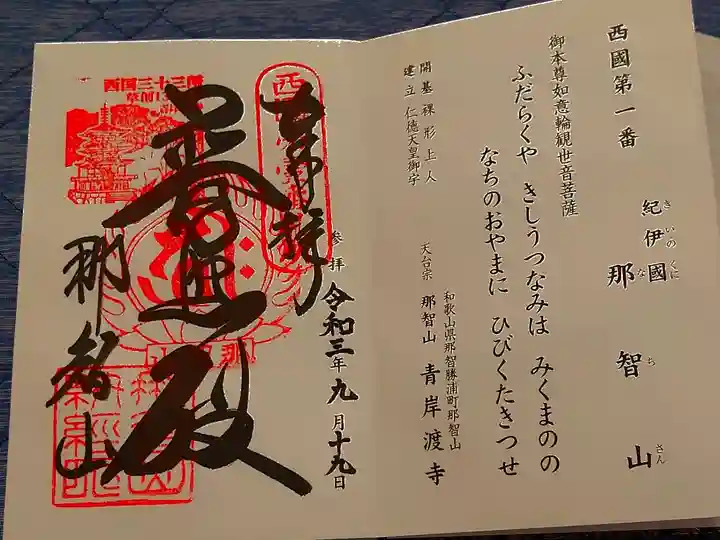 西國第一番
紀伊國 那智山
きいのくに なちさん
御本尊如意輪観世音菩薩
ふだらくや きしうつなみは みくまのの
なちのおやまに ひびくたきつせ
開基 裸形上人
建立 仁徳天皇御宇
和歌山県那智勝浦町那智山
天台宗 那智山 青岸渡寺
奉拝
参拝 令和三年九月十九日
普照殿
那智山
西国三十三所
草創13